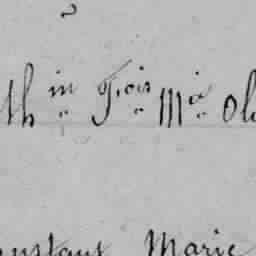 th in Fois Ma ol
onstant Marie